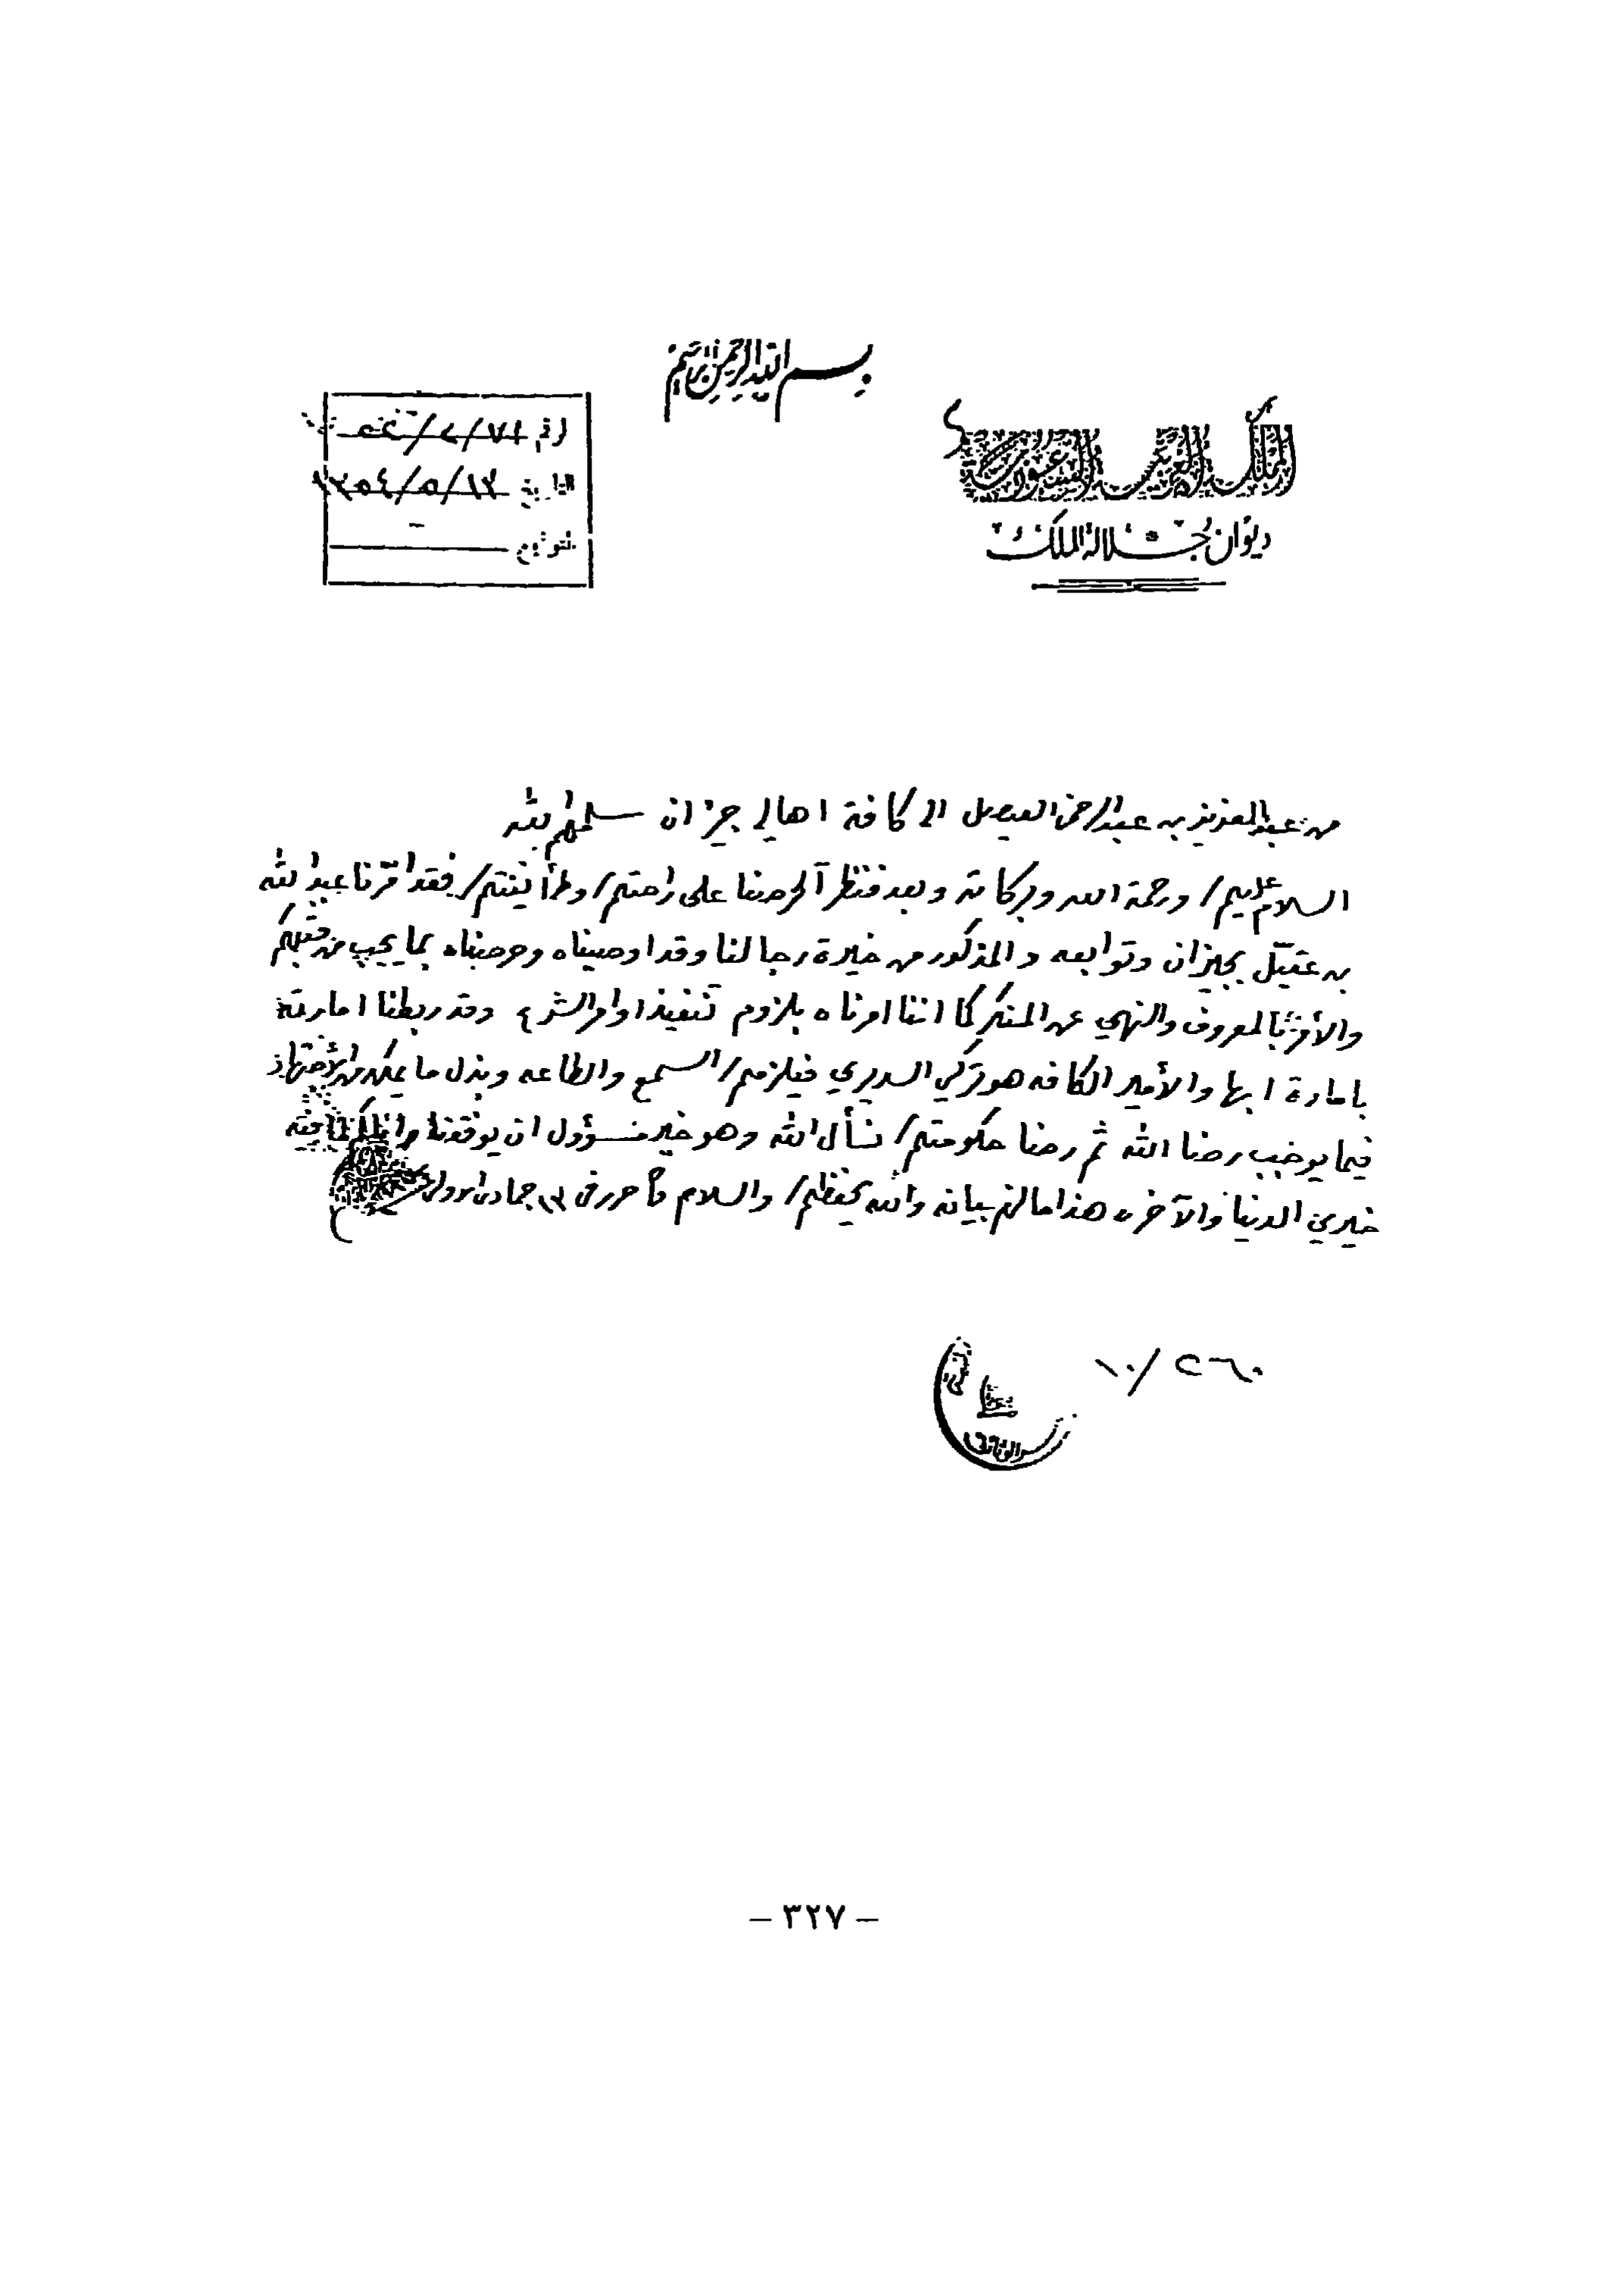 بسم الله الرحمن الرحيم
المملكة العربية السعودية
ديوان جلالة الملك
رقم
التاريخ ١٣٥٤/٥/١٣
التوقيع
من عبد العزيز بن عبد الرحمن الفيصل الى كافة اهالي جيزان سلمهم الله
السلام عليكم ورحمة الله وبركاته وبعد فنظرآ لحرصنا على راحتكم وطمأنينتكم فقد امرنا عبد الله
بن عقيل بجيزان وتوابعه والمذكور من خيرة رجالنا وقد اوصيناه وحرصناه بما يجب من قبلكم
والأمر بالمعروف والنهي عن المنكر كما اننا امرناه بلزوم تنفيذ اوامر الشرع وقد ربطنا امارته
بامارة ابها والأمير الكافه هو تركي السديري فيلزمكم السمع والطاعه وبذل ما يمكن من الأجتهاد
فيما يوجب رضا الله ثم رضا حكومتكم نسأل الله وهو خير مسؤول ان يوفقنا واياكم لما فيه
خيري الدنيا والآخره هذا ما لزم بيانه والله يحفظكم والسلام حرر في ١٣ جمادى الاولى
١٠/٢٦٠
الوثائق
– ٣٢٧ –